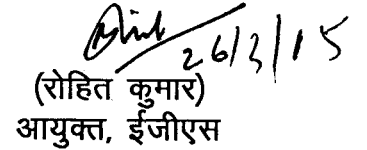 26/3/15
(रोहित कुमार)
आयुक्त, ईजीएस